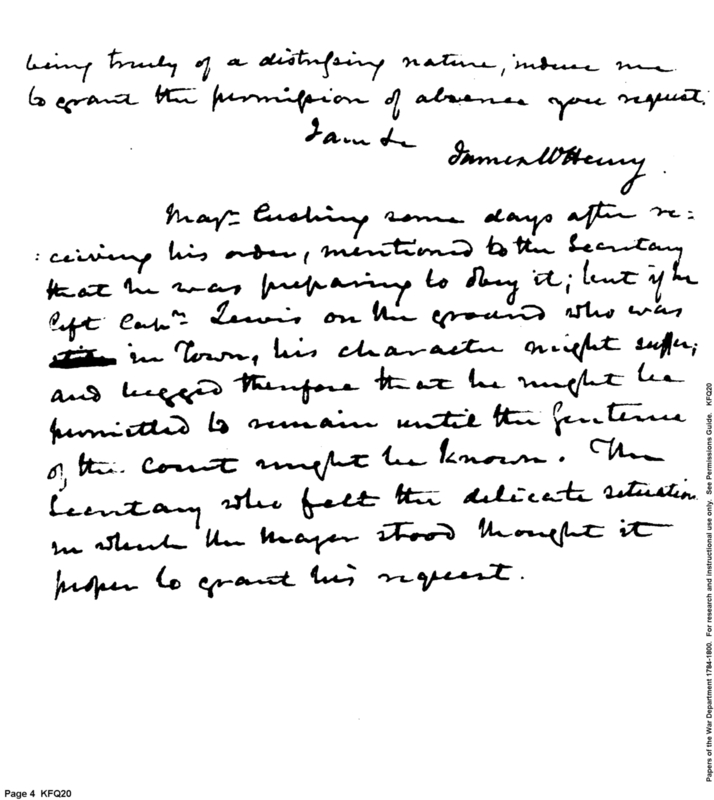 being truly of a distressing nature, induce me
to grant the permission of absence you request.
I am &c
James McHenry.
Majr. Cushing some days after re=
:ceiving his order, mentioned to the Secretary
that he was preparing to obey it; but if he
left Capn. Lewis on the ground who was
in Town, his character might suffer;
and begged therefore that he might be
permitted to remain until the Sentence
of the Court might be known. The
Secretary who felt the delicate situation
in which the Major stood thought it
proper to grant his request.
Page 4 KFQ20
Papers of the War Department 1784-1800. For research and instructional use only. See Permissions Guide. KFQ20